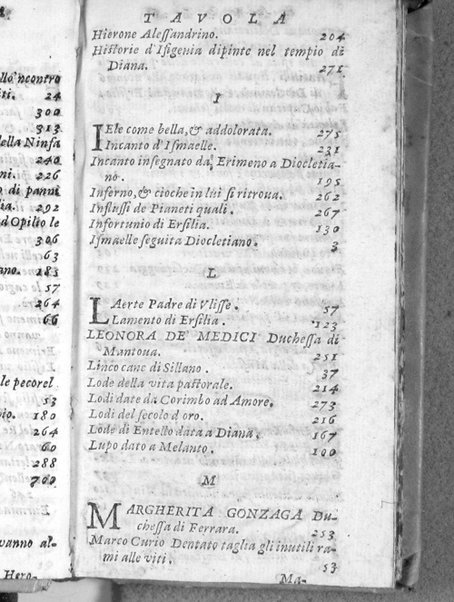 llo'ncontro
ti. 24
300
313
della Ninfa
240
ni. 226
o di panni
lia. 292
d Opilio le
306
63
ano. 183
57
264
66
le pecorel
53
io. 180
264
60
288
700
vanno al-
Hero-
TAVOLA
Hierone Alessandrino. 204
Historie d'Ifigenia dipinte nel tempio di
Diana. 271
I
IEle come bella, & addolorata. 275
Incanto d'Ismaelle. 231
Incanto insegnato da Erimeno a Diocletia-
no. 195
Inferno, & cioche in lui si ritroua. 262
Influssi de Pianeti quali. 267
Infortunio di Ersilia. 130
Ismaelle seguita Diocletiano. 3
L
LAerte Padre di Vlisse. 57
Lamento di Ersilia. 123
LEONORA DE' MEDICI Duchessa di
Mantoua. 251
Linco cane di Sillano. 37
Lode della vita pastorale. 214
Lodi date da Corimbo ad Amore. 273
Lodi del secolo d'oro. 216
Lode di Entello data a Diana. 167
Lupo dato a Melanto. 100
M
MARGHERITA GONZAGA Du-
chessa di Ferrara. 253
Marco Curio Dentato taglia gli inutili ra-
mi alle viti. 53
Ma-